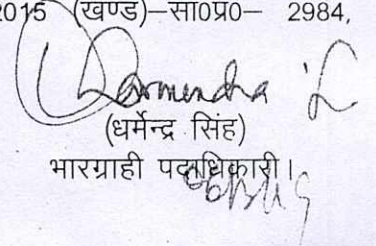 2015 (खण्ड)–सा0प्र0– 2984,
Dharmendra
(धर्मेन्द्र सिंह)
भारग्राही पदाधिकारी।